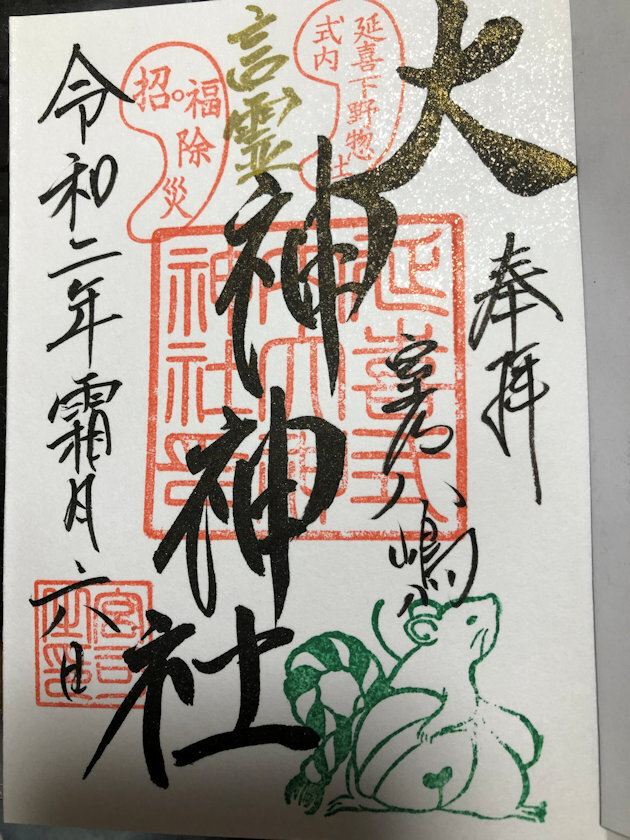 奉拝
室乃八嶋
大神神社
言霊
延喜下野惣社
式内
招福除災
延喜式
内大神
神社印
令和二年霜月六日
宮司之印